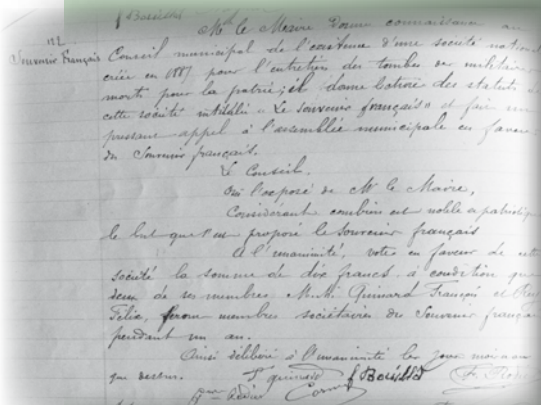 Bouillot
M. le Maire donne connaissance au
Souvenir Français Conseil municipal de l'existence d'une société national
créée en 1887 pour l'entretien des tombes des militaires
morts pour la patrie; il donne lecture des statuts de
cette société intitulée « Le Souvenir français » et fait un
pressant appel à l'assemblée municipale en faveur
du Souvenir français.
Le Conseil,
Ouï l'exposé de M. le Maire,
Considérant combien est noble et patriotique
le but que s'est proposé le Souvenir français
A l'unanimité, vote en faveur de cette
société la somme de dix francs, à condition que
deux de ses membres M.M. Guinard François et
Félix, feront membres sociétaires du Souvenir français
pendant un an.
Ainsi délibéré à l'unanimité les jour mois et an
que dessus.